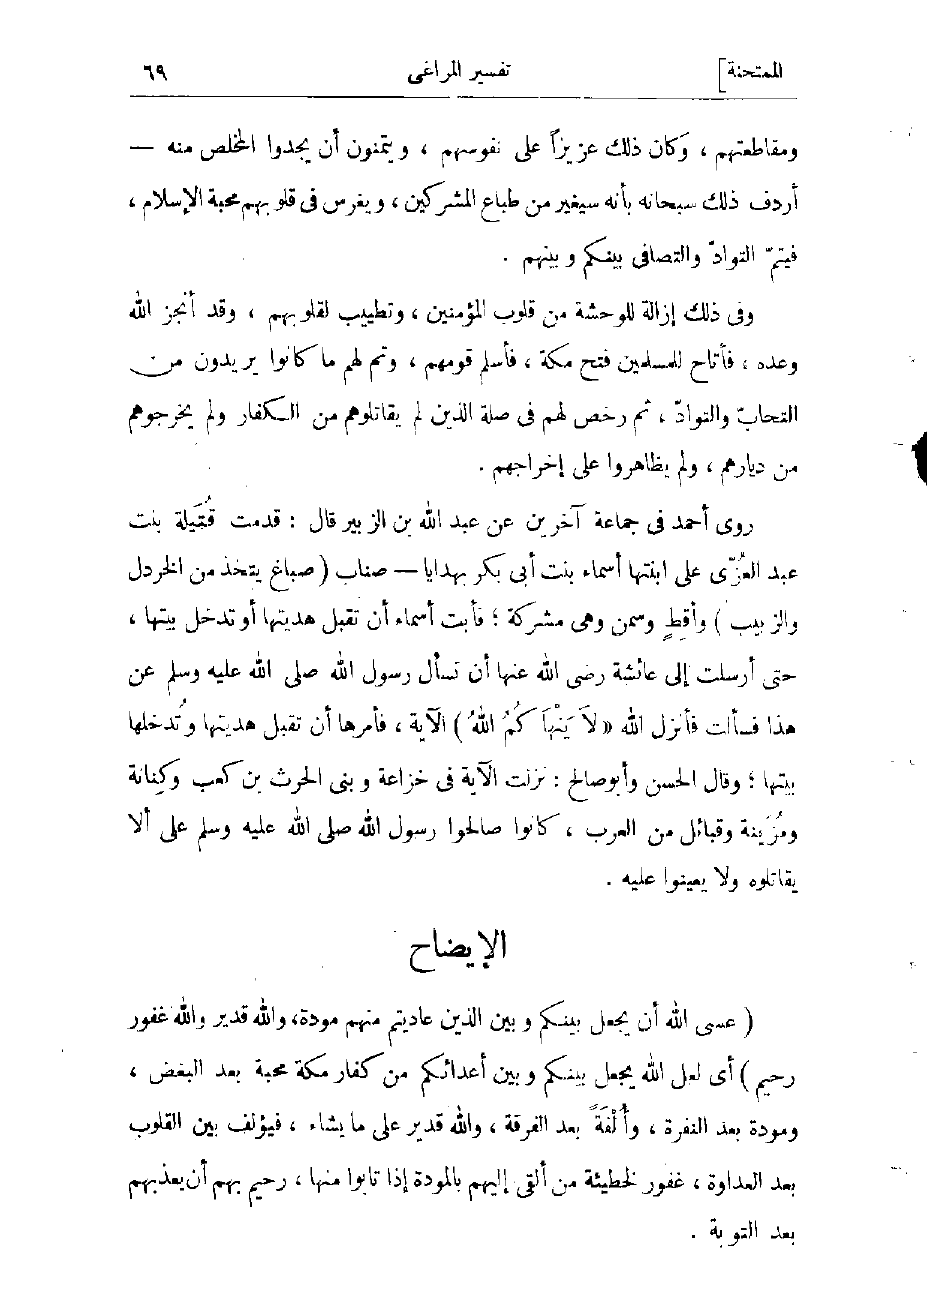 الممتحنة] تفسير المراغى ٦٩
ومقاطعتهم ، وَكان ذلك عزيزاً على نفوسهم ، ويتمنون أن يجدوا المخلص منه —
أردف ذلك سبحانه بأنه سيغير من طباع المشركين ، ويغرس فى قلوبهم محبة الإسلام ،
فيتمّ التوادّ والتصافى بينكم وبينهم .
وفى ذلك إزالة للوحشة من قلوب المؤمنين ، وتطييب لقلوبهم ، وقد أنجز الله
وعده ، فأتاح للمسلمين فتح مكة ، فأسلم قومهم ، وتم لهم ما كانوا يريدون من
التحابّ والتوادّ ، ثم رخص لهم فى صلة الذين لم يقاتلوهم من الكفار ولم يخرجوهم
من ديارهم ، ولم يظاهروا على إخراجهم .
روى أحمد فى جماعة آخرين عن عبد الله بن الزبير قال : قدمت قُتَيلة بنت
عبد العُزّى على ابنتها أسماء بنت أبى بكر بهدايا — صناب ( صباغ يتخذ من الخردل
والزبيب ) وأقِطٍ وسمن وهى مشركة ؛ فأبت أسماء أن تقبل هديتها أو تدخل بيتها ،
حتى أرسلت إلى عائشة رضى الله عنها أن تسأل رسول الله صلى الله عليه وسلم عن
هذا فسألت فأنزل الله « لاَ يَنْهَا كُمُ اللهُ ) الآية ، فأمرها أن تقبل هديتها وتُدخلها
بيتها ؛ وقال الحسن وأبوصالح : نزلت الآية فى خزاعة وبنى الحرث بن كعب وكِنانة
ومُزَينة وقبائل من العرب ، كانوا صالحوا رسول الله صلى الله عليه وسلم على ألا
يقاتلوه ولا يعينوا عليه .
الإيضاح
( عسى الله أن يجعل بينكم وبين الذين عاديتم منهم مودة، والله قدير والله غفور
رحيم ) أى لعل الله يجعل بينكم وبين أعدائكم من كفار مكة محبة بعد البغض ،
ومودة بعد النفرة ، وأُلْفَةً بعد الفرقة ، والله قدير على ما يشاء ، فيؤلف بين القلوب
بعد العداوة ، غفور لخطيئة من ألقى إليهم بالمودة إذا تابوا منها ، رحيم بهم أن يعذبهم
بعد التوبة .